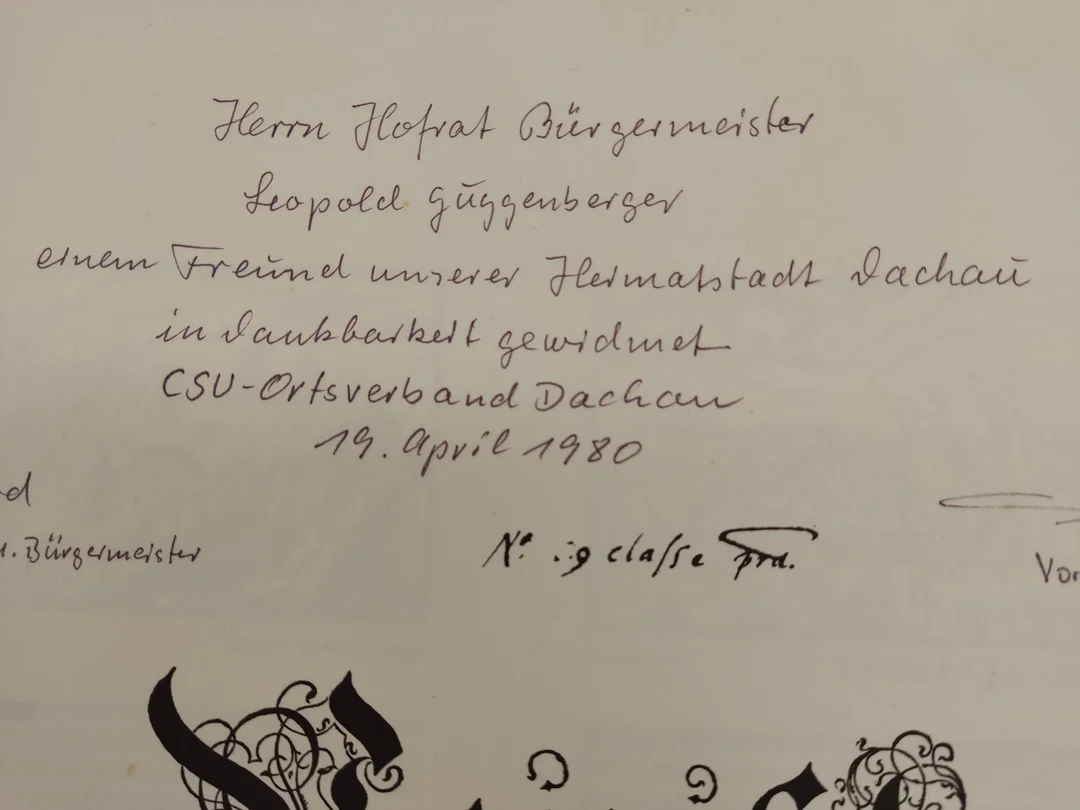 Herrn Hofrat Bürgermeister
Leopold Guggenberger
einem Freund unserer Heimatstadt Dachau
in Dankbarkeit gewidmet
CSU-Ortsverband Dachau
19. April 1980
Bürgermeister
classe